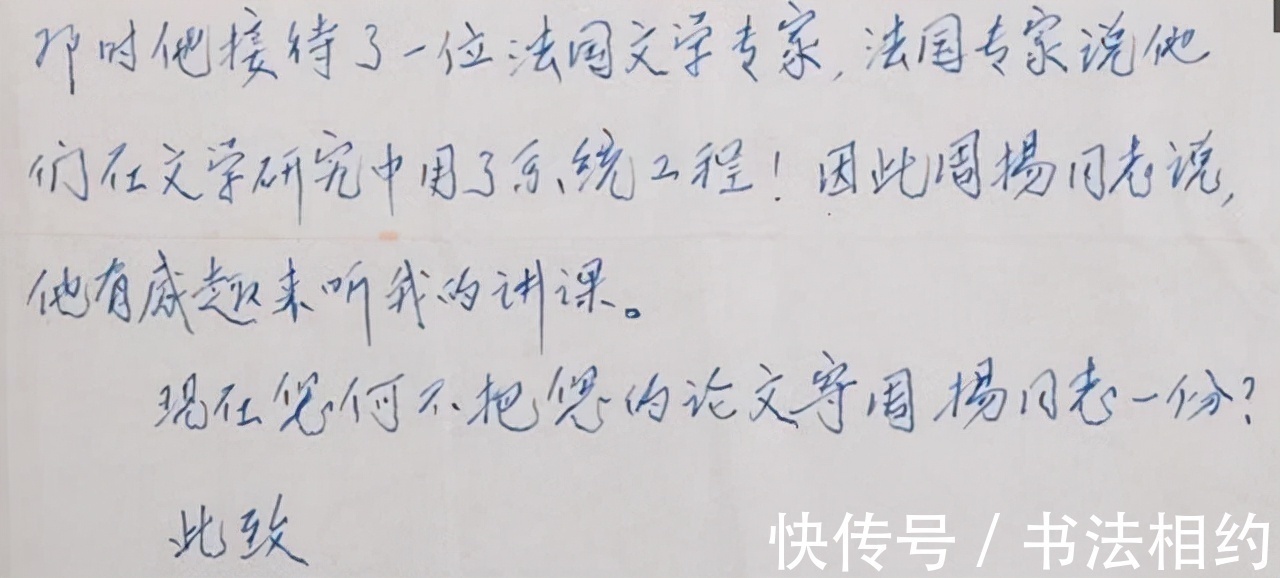 那时他接待了一位法国文学专家,法国专家说他
们在文学研究中用了系统工程!因此周扬同志说,
他有感趣来听我的讲课。
现在您何不把您的论文寄周扬同志一份?
此致
快传号 / 书法相约